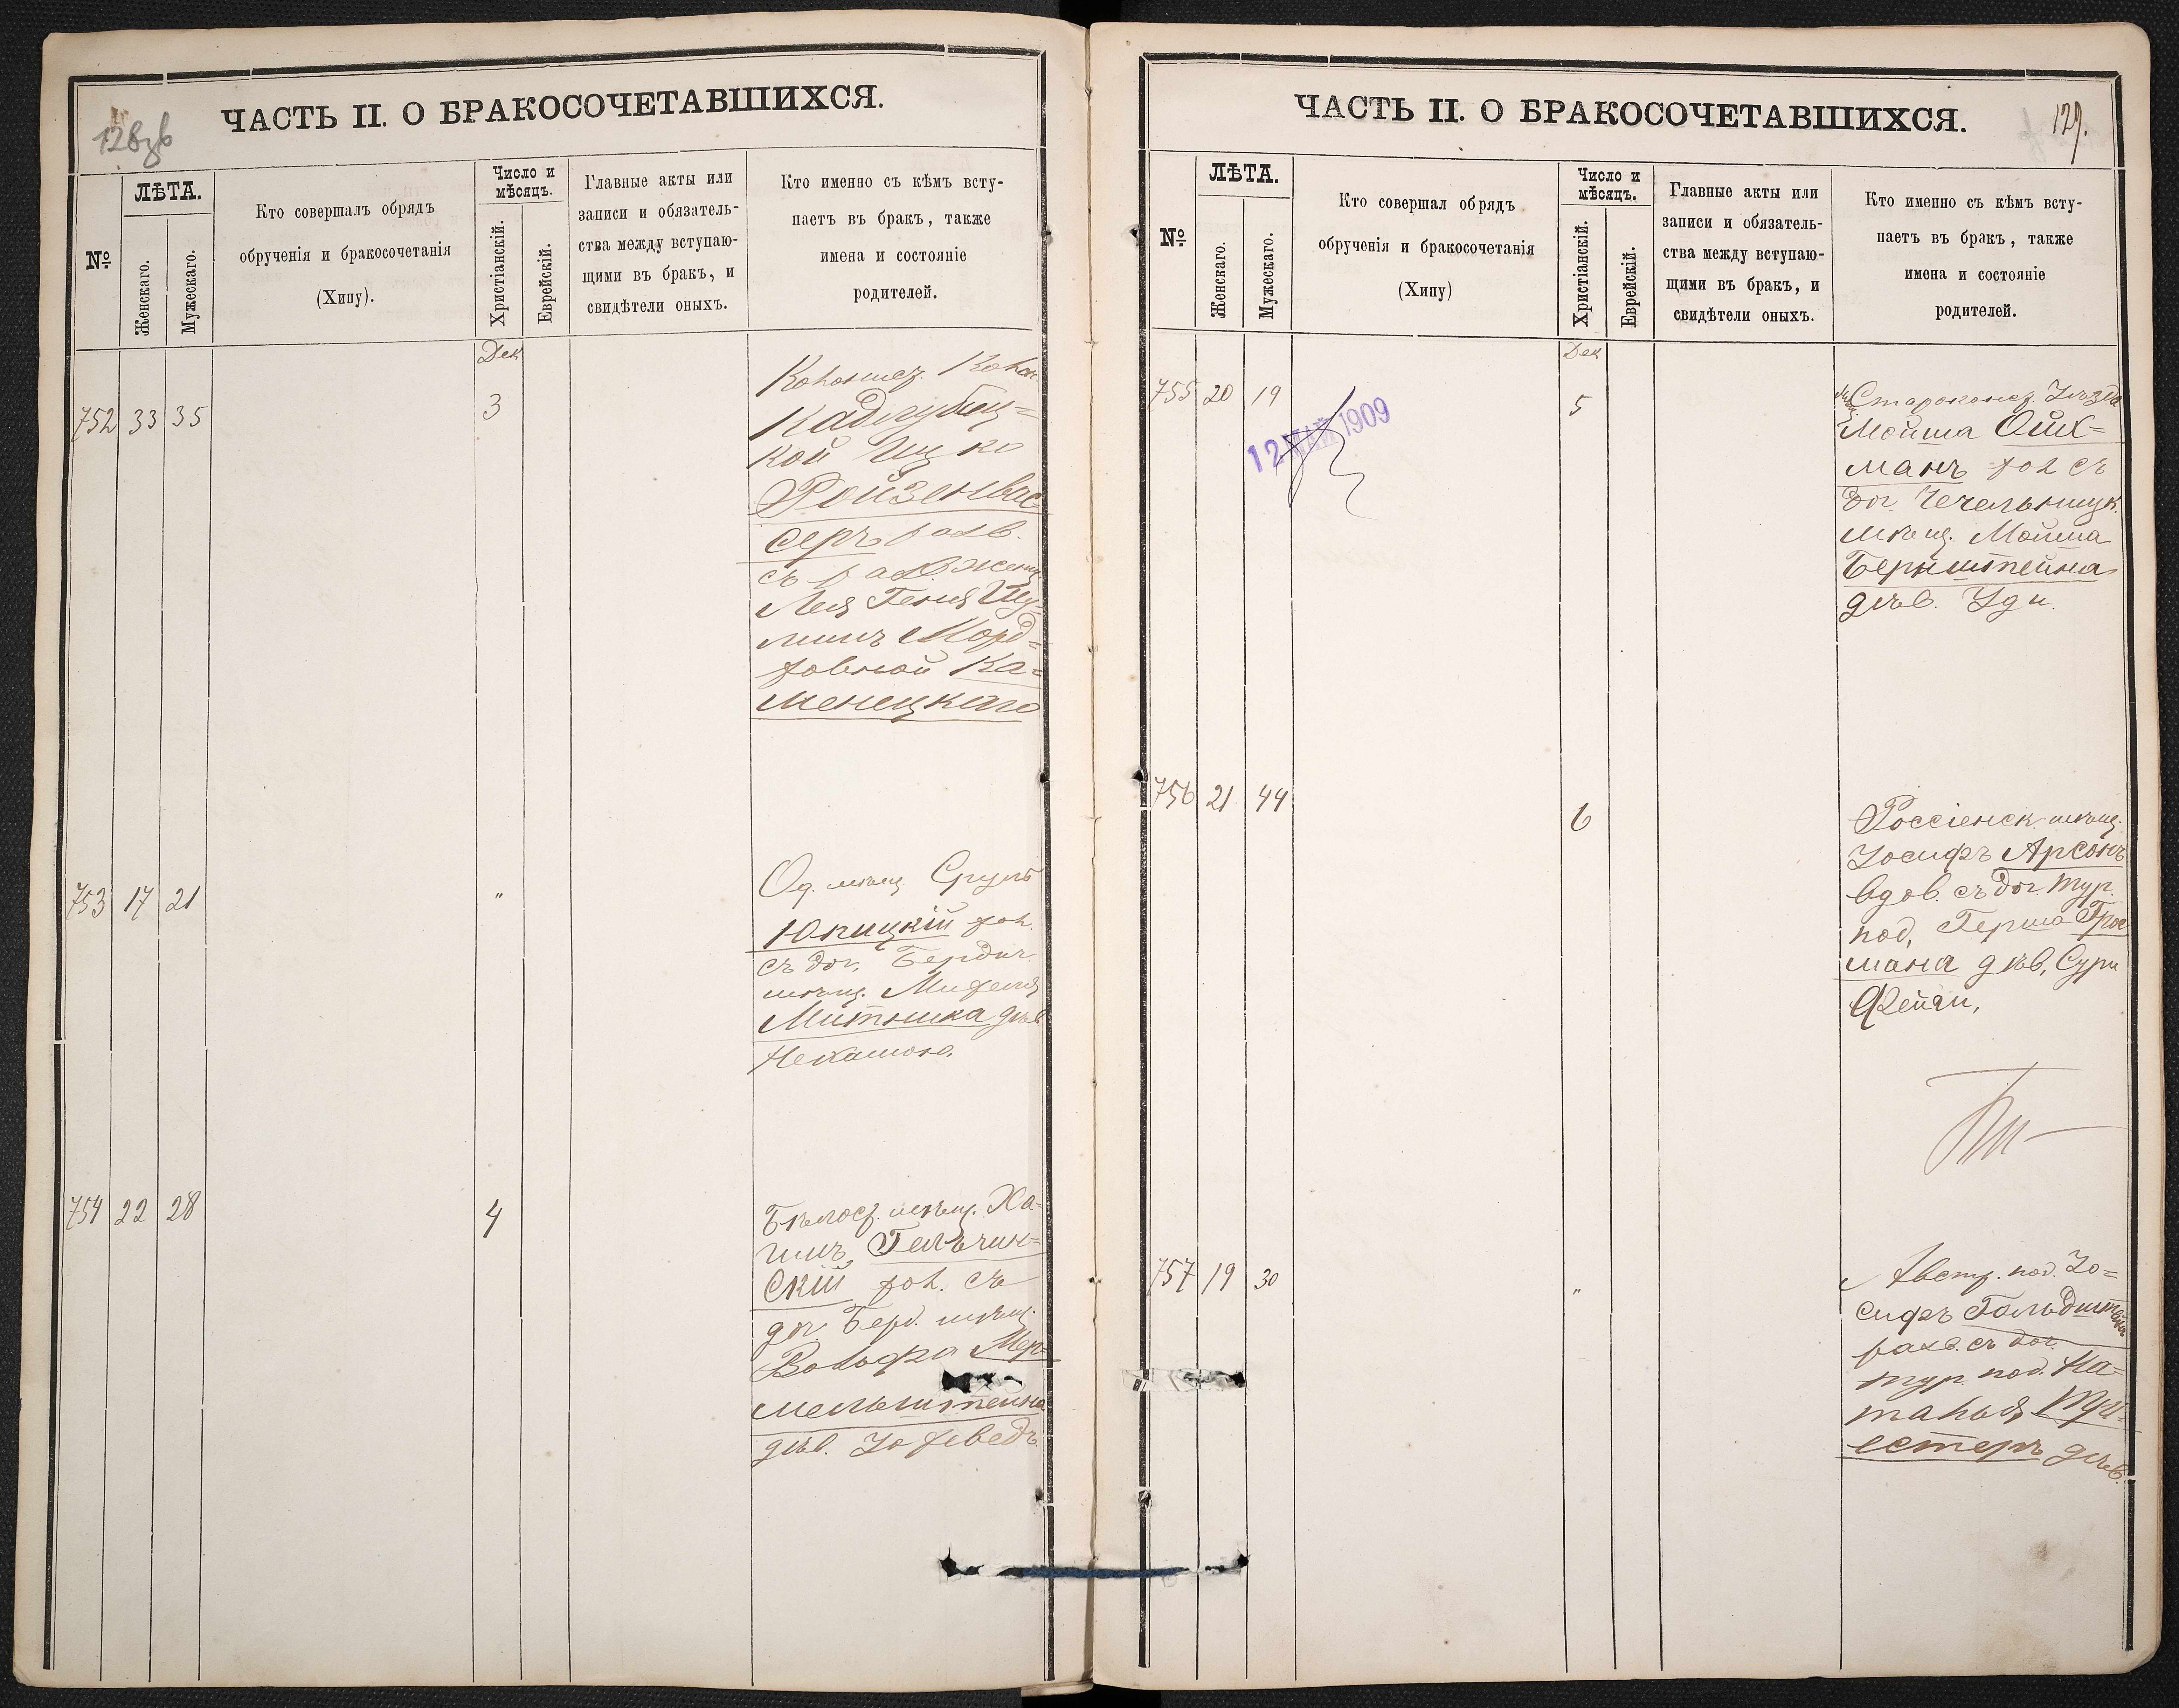 128зв
ЧАСТЬ II. О БРАКОСОЧЕТАВШИХСЯ.
№
ЛѢТА.
Женскаго.
Мужескаго.
Кто совершалъ обрядъ
обрученія и бракосочетанія
(Хипу).
Число и
мѣсяцъ.
Христіанскій.
Еврейскій.
Главные акты или
записи и обязатель-
ства между вступаю-
щими въ бракъ, и
свидѣтели оныхъ.
Кто именно съ кѣмъ всту-
паетъ въ бракъ, также
имена и состояніе
родителей.
Дек
752 33 35
3
Кадлубец=
кой Ицко
Ройзенвас
серъ разв.
съ разв. женщ
Лея Геня
Морд=
ховной Ка=
менецкаго
753 17 21
"
Од. мѣщ Сруль
Юкицкій хол.
съ доч. Бердич.
мѣщ. Михеля
Митника дѣв
Нехамою.
754 22 28
4
Бѣлоц. мѣщ. Ха-
имъ Гельчин=
скій хол. съ
доч. Берд. мѣщ.
Вольфа Мер=
мельштейна
дѣв. Іохеведъ
ЧАСТЬ II. О БРАКОСОЧЕТАВШИХСЯ.
129.
№
ЛѢТА.
Женскаго.
Мужескаго.
Кто совершал обрядъ
обрученія и бракосочетанія
(Хипу)
Число и
мѣсяцъ.
Христіанскій.
Еврейскій.
Главные акты или
записи и обязатель-
ства между вступаю-
щими въ бракъ, и
свидѣтели оныхъ.
Кто именно съ кѣмъ всту-
паетъ въ бракъ, также
имена и состояніе
родителей.
Дек
755 20 19
12 МАЙ 1909
5
Староконс. Уѣзда
Мойша Ойх=
манъ хол съ
доч. Чечельницк.
мѣщ. Мойша
Бернштейна
дѣв. Уди.
756 21 44
6
Россіенск. мѣщ.
Іосифъ Арсонъ
вдов. съ доч. тур.
под, Герша Грос
мана дѣв, Суры
Фейги,
757 19 30
"
Австр. под. Іо=
сифъ Гольдштейнъ
разв. съ доч.
тур. под. На=
танья Три=
естеръ дѣв.